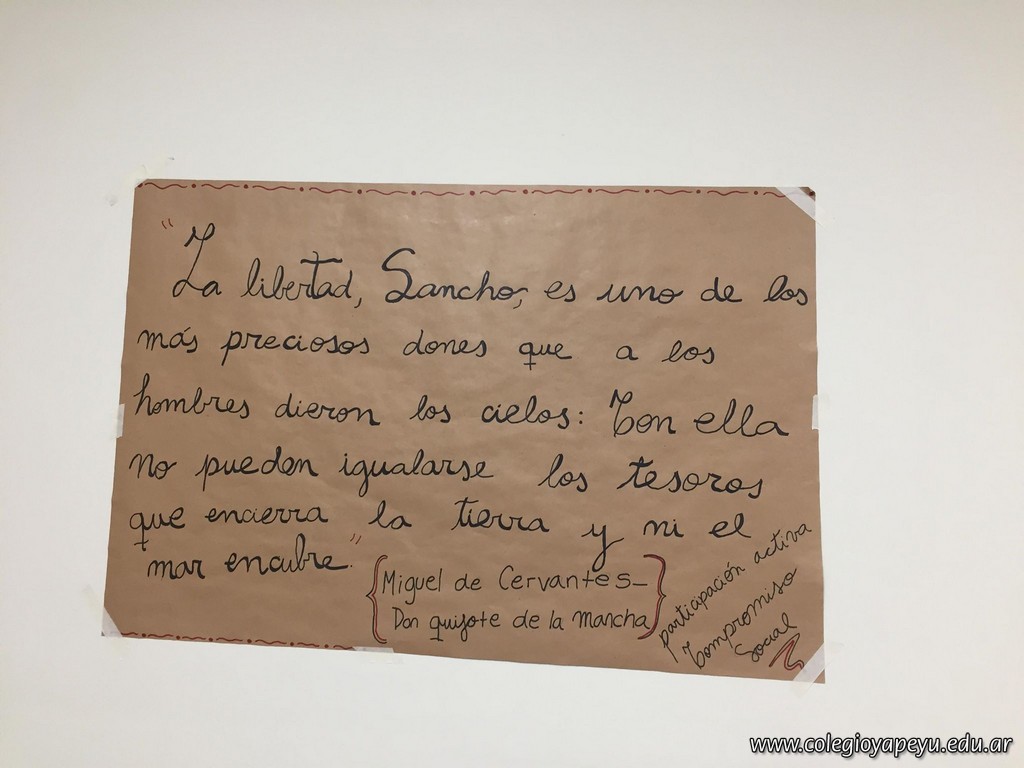 "La libertad, Sancho, es uno de los
más preciosos dones que a los
hombres dieron los cielos: Con ella
no pueden igualarse los tesoros
que encierra la tierra y ni el
mar encubre."
{Miguel de Cervantes_
Don quijote de la mancha}
participación activa
Compromiso
Social
www.colegioyapeyu.edu.ar